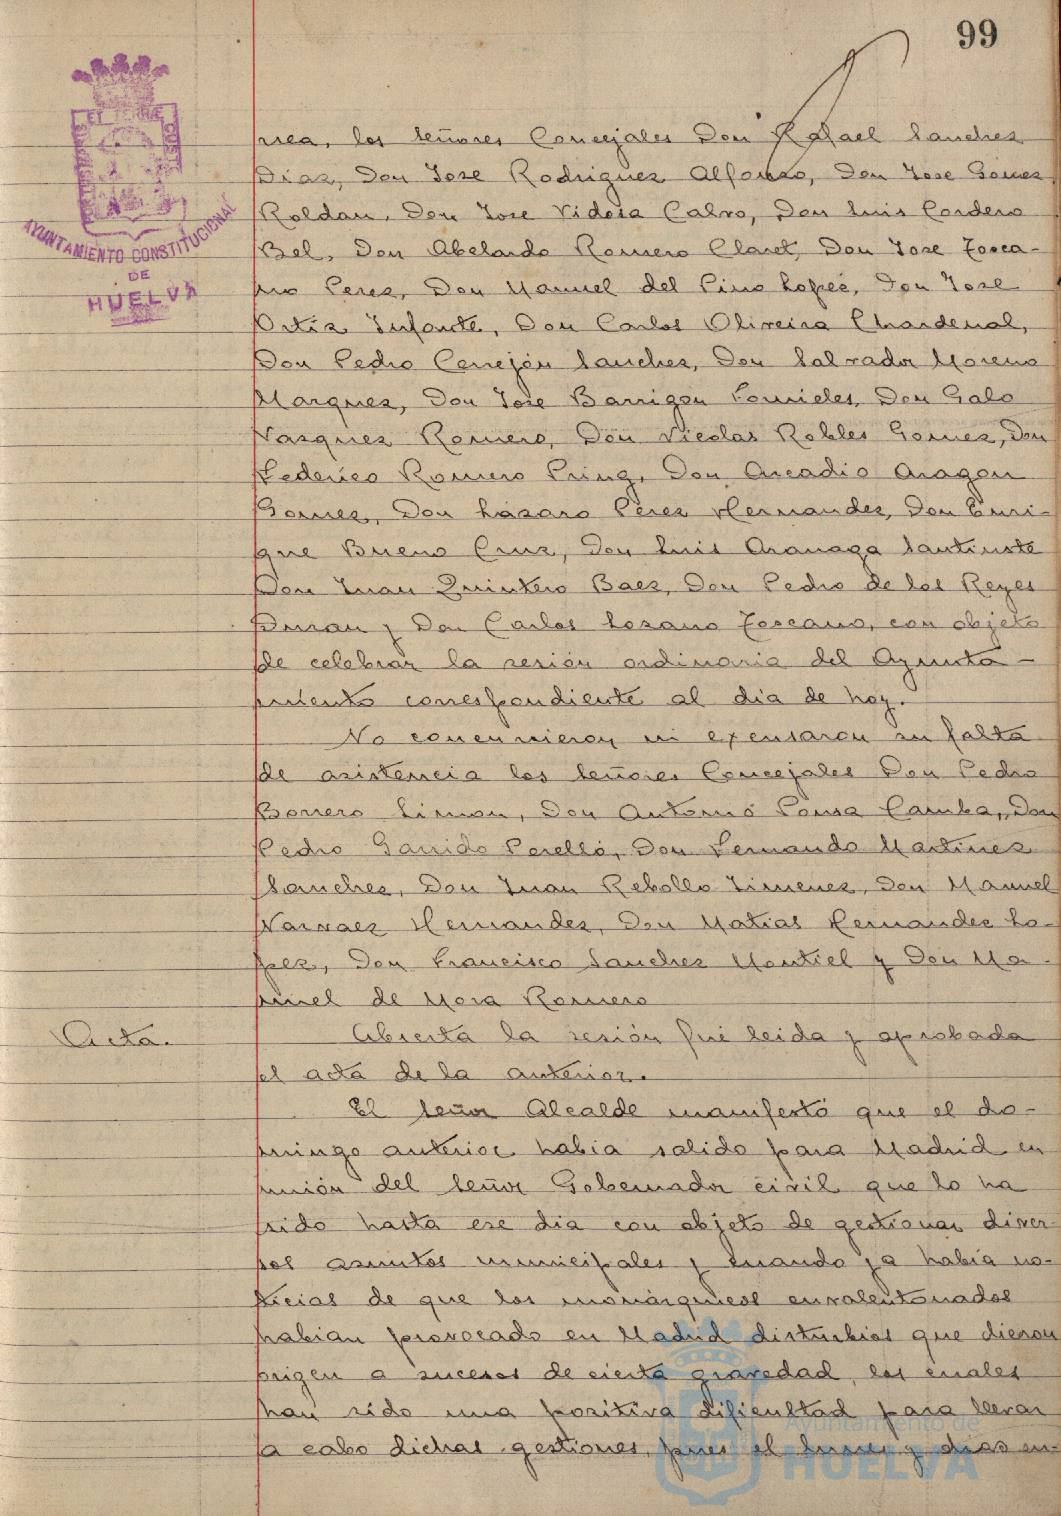 99
AYUNTAMIENTO CONSTITUCIONAL
DE
HUELVA
nea, los señores Concejales Don Rafael Sanchez
Diaz, Don Jose Rodriguez Alfonso, Don Jose Gomez
Roldan, Don Jose Videra Calvo, Don Luis Cordero
Bel, Don Abelardo Romero Claret, Don Jose Tosca-
no Perez, Don Manuel del Pino Lopez, Don Jose
Ortiz Infante, Don Carlos Oliveira Chardenal,
Don Pedro Cerrejón Sanchez, Don Salvador Moreno
Marquez, Don Jose Barrigon Fornieles, Don Galo
Vazquez Romero, Don Nicolas Robles Gomez, Don
Federico Romero Pring, Don Arcadio Aragon
Gomez, Don Lazaro Perez Hernandez, Don Enri-
que Bueno Cruz, Don Luis Aranaga Santiuste
Don Juan Quintero Baez, Don Pedro de los Reyes
Duran y Don Carlos Lozano Toscano, con objeto
de celebrar la sesión ordinaria del Ayunta-
miento correspondiente al dia de hoy.
No concurrieron ni excusaron su falta
de asistencia los señores Concejales Don Pedro
Borrero Limon, Don Antonio Pousa Camba, Don
Pedro Garrido Perelló, Don Fernando Martinez
Sanchez, Don Juan Rebollo Jimenez, Don Manuel
Narvaez Hernandez, Don Matias Hernandez Lo-
pez, Don Francisco Sanchez Montiel y Don Ma-
nuel de Mora Romero
Acta.
Abierta la sesión fué leida y aprobada
el acta de la anterior.
El señor Alcalde manifestó que el do-
mingo anterior habia salido para Madrid en
unión del señor Gobernador civil que lo ha
sido hasta ese dia con objeto de gestionar diver
sos asuntos municipales y cuando ya habia no-
ticias de que los monárquicos envalentonados
habian provocado en Madrid disturbios que dieron
origen a sucesos de cierta gravedad, los cuales
han sido una positiva dificultad para llevar
a cabo dichas gestiones, pues el lunes y dias en-
Ayuntamiento de
HUELVA